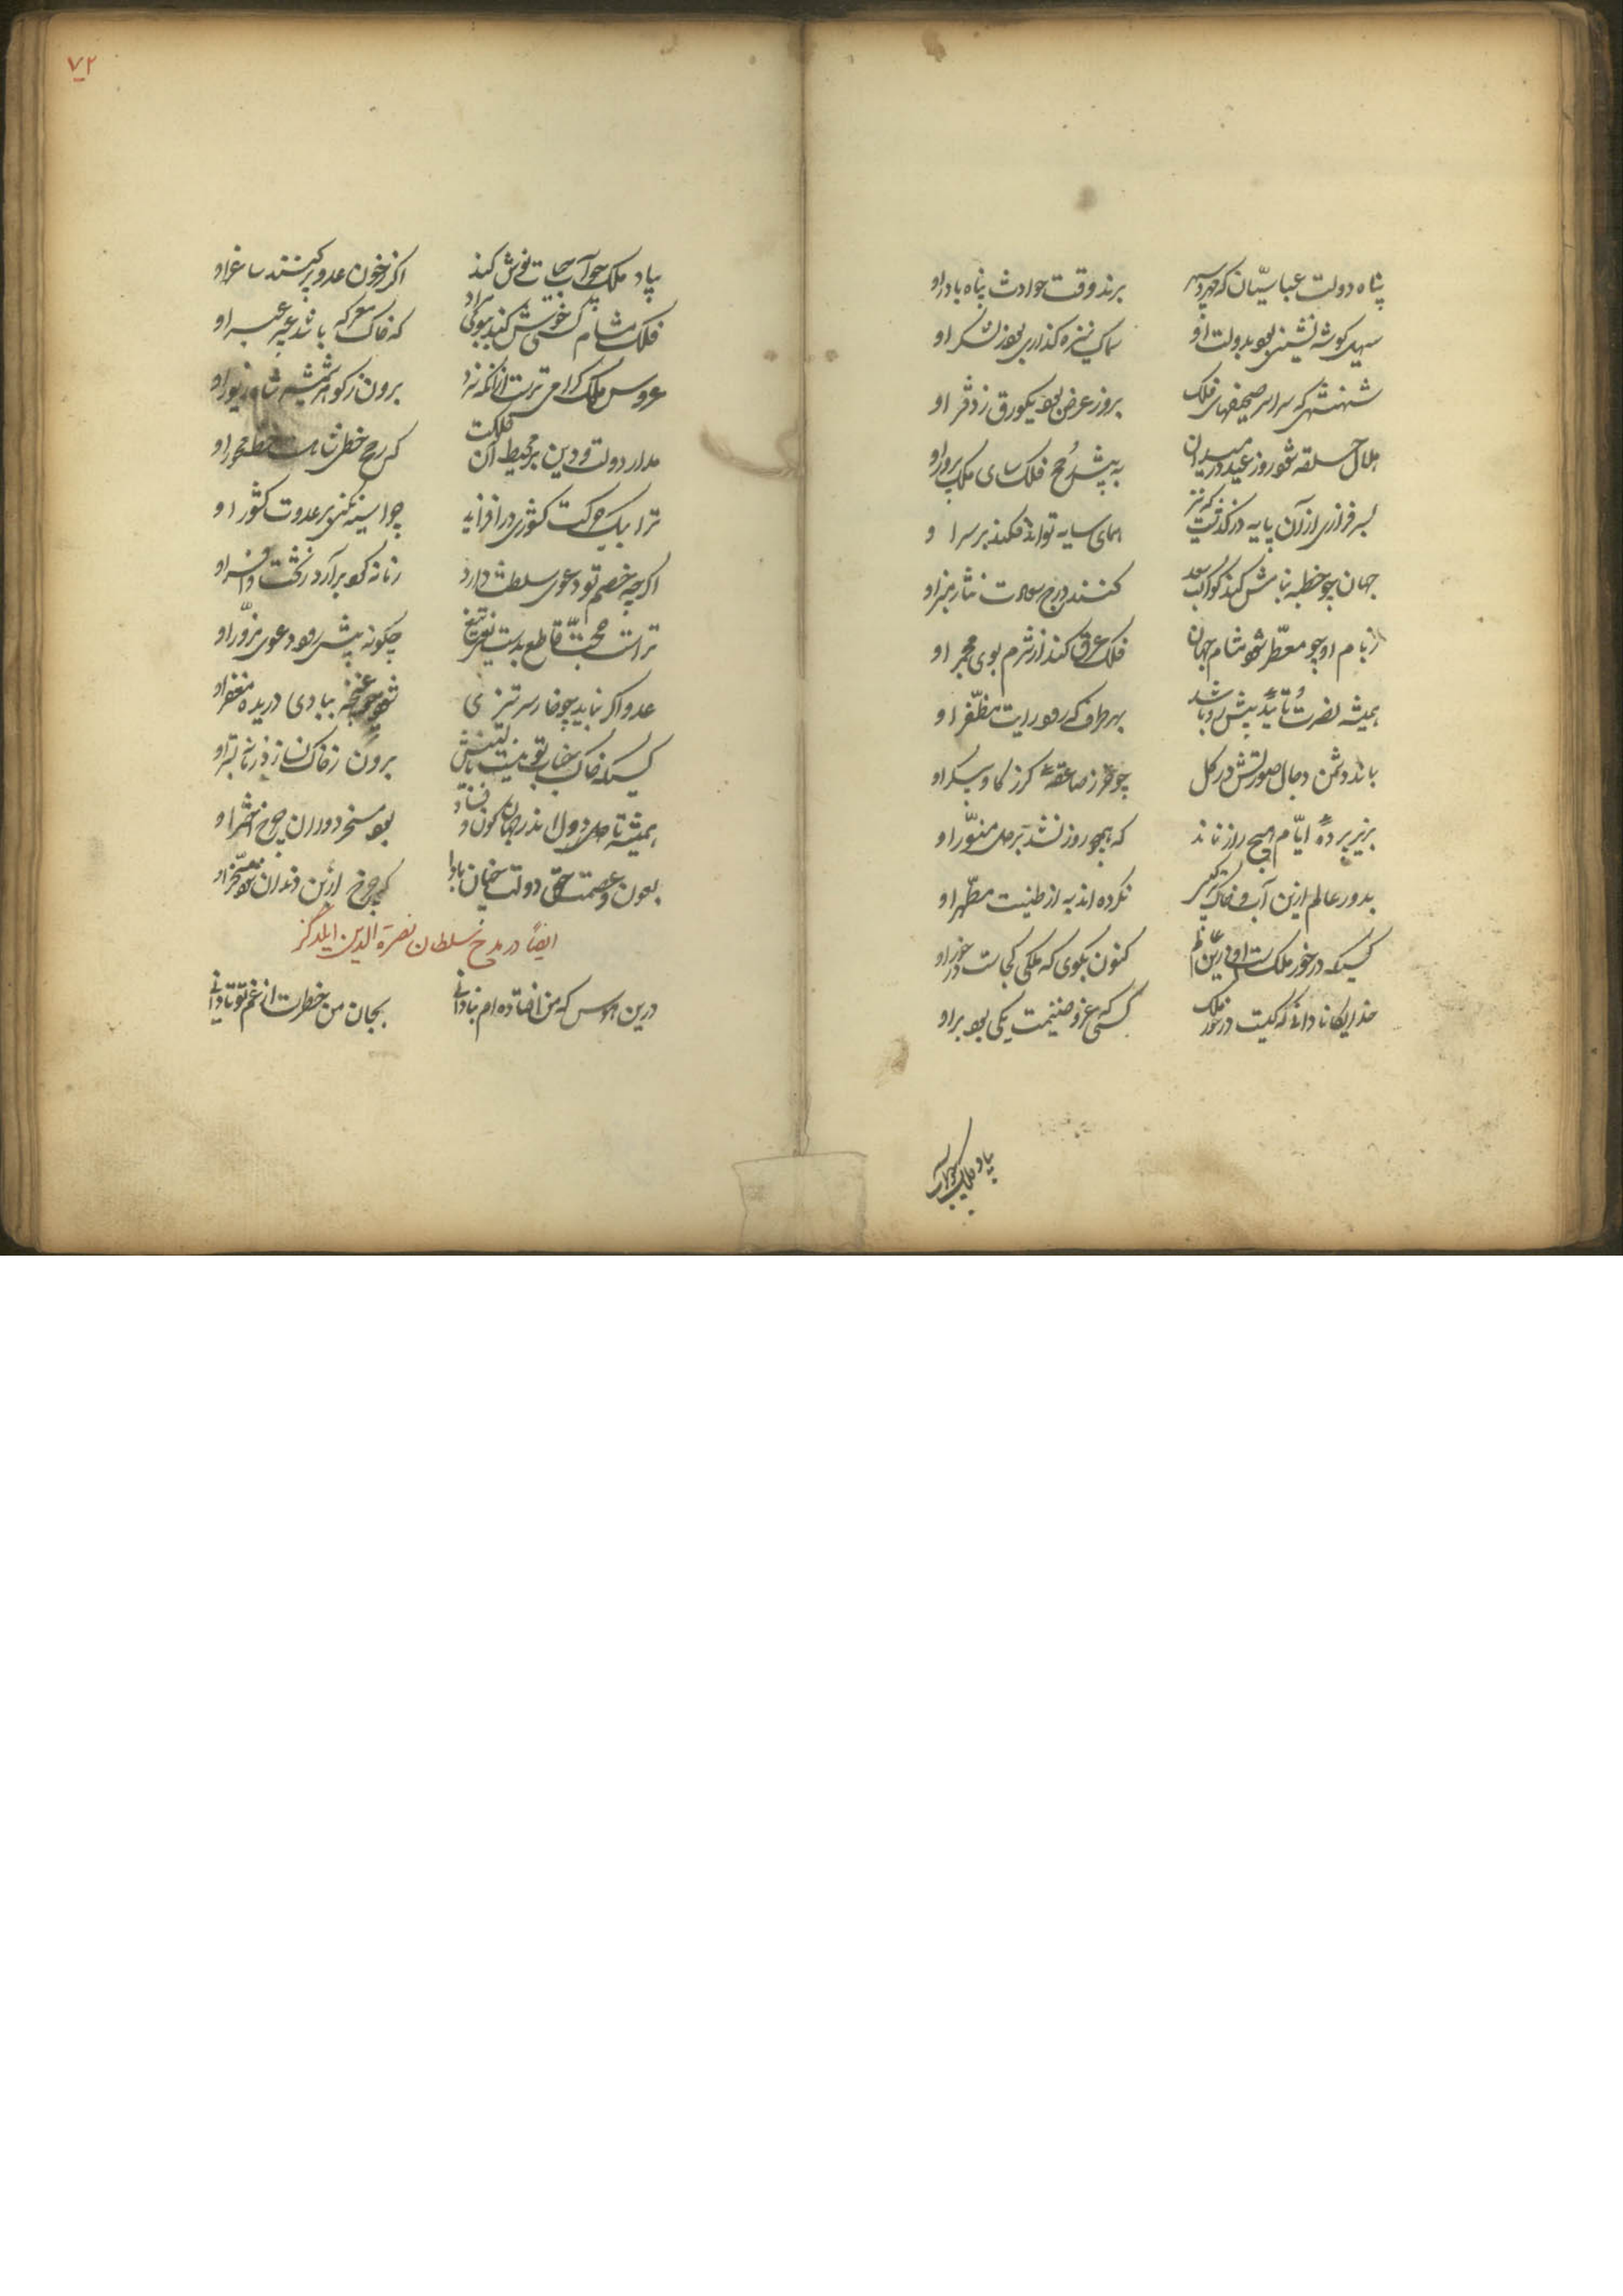 پناه دولت عباسیان که مهر و سپهر
برند وقت حوادث پناه با در او
سهیل گوشه نشینی بود بدولت او
سماک نیزه گذاری بود ز لشکر او
شهنشهی که سراسر صحیفهای فلک
بروز عرض بود یکورق ز دفتر او
هلال حلقه شود روز عید در میدان
به پیش رمح فلک سای ملک پرور او
بسرفرازی از آن پایه درگذشت که نیز
همای سایه تواند فکند بر سر او
جهان چو خطبه بنامش کند کواکب سعد
کنند درج سعادت نثار منبر او
ز نام او چو معطر شود مشام جهان
فلک عرق کند از شرم بوی مجمر او
همیشه نصرت و تأیید پیش رو باشد
بهر طرف که رود رایت مظفر او
بماند دشمن دجال صورتش در گل
چو خر ز صاعقهٔ گرز گاو پیکر او
بزیر پردهٔ ایّام هیچ راز نماند
که همچو روز نشد بر دل منوّر او
بدور عالم ازین آب و خاک
نکرده اند به از طینت مطهر او
کسیکه در خور ملکست او درین عالم
کنون بگوی که ملکی کجاست در خور او
خدایگانا دانی که کیست در خور ملک
کسی که غزو و غنیمت یکی بود بر او
بیاد ملک چو آب
۷۲
بیاد ملک چو آب حیات نوش کند
اگر ز خون عدو پر کنند ساغر او
فلک مشام کسی خوش کند ببوی مراد
که خاک معرکه باشد عبیر و عنبر او
عروس ملک گرامی ترست از آنکه نهند
برون ز گوهر شمشیر شاه زیور او
مدار دولت و دین بر محیط آن فلکست
که رمح خطی شاهست خط محور او
ترا بیک حرکت کشوری درافزاید
چو اسپه بر عدوت کشور او
اگرچه خصم تو دعوی سلطنت دارد
زمانه کو برآرد ز تخت و افسر او
تراست حجّت قاطع بدست یعنی تیغ
چگونه پیش رود دعوی مزوّر او
عدو اگر بنماید چو خار سر تیزی
شود چو غنچه ببادی دریده مغفر او
کسیکه خاک جناب تو نیست بالینش
برون ز خاک نسازد زمانه بستر او
همیشه تا دول اندر جهان کون و فساد
بود مسخر دوران چرخ اخضر او
بعون و عصمت حق دولتت چنان بادا
که چرخ ازین دندان شود مسخّر او
ایضاً در مدح سلطان نصرة الدین ایلدگز
درین هوس که من افتاده ام بنادانی
بجان من خطرست از غم تو تا دانی